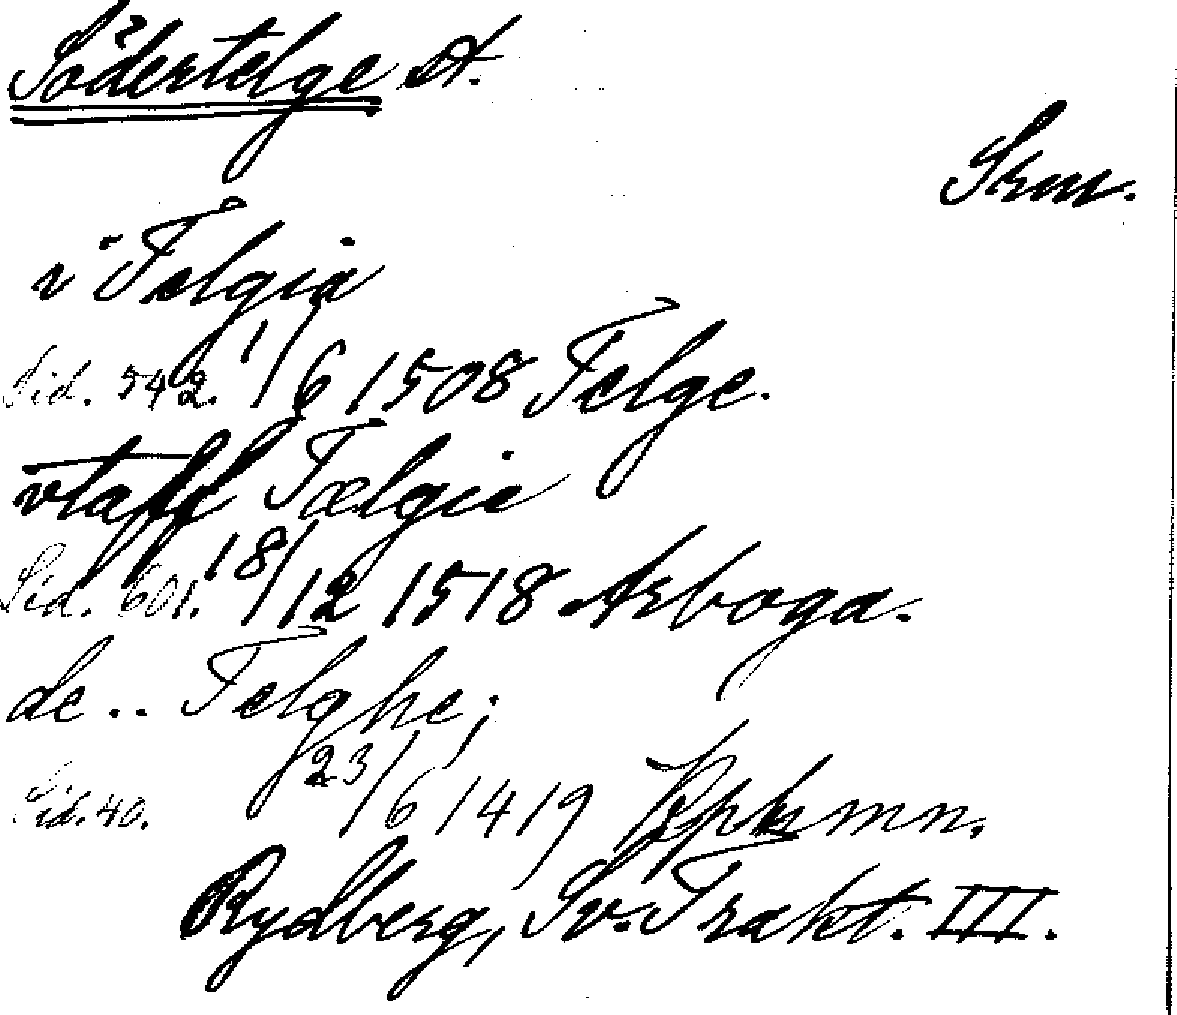 Södertelge St.
Srm.
i Telgia
Sid. 542. 1/6 1508 Telge.
vtaff Tælgie
Sid. 601. 18/12 1518 Arboga.
de.. Telghe;
Sid. 40. 23/6 1419 Kphmn.
Rydberg, Sv. Trakt. III.